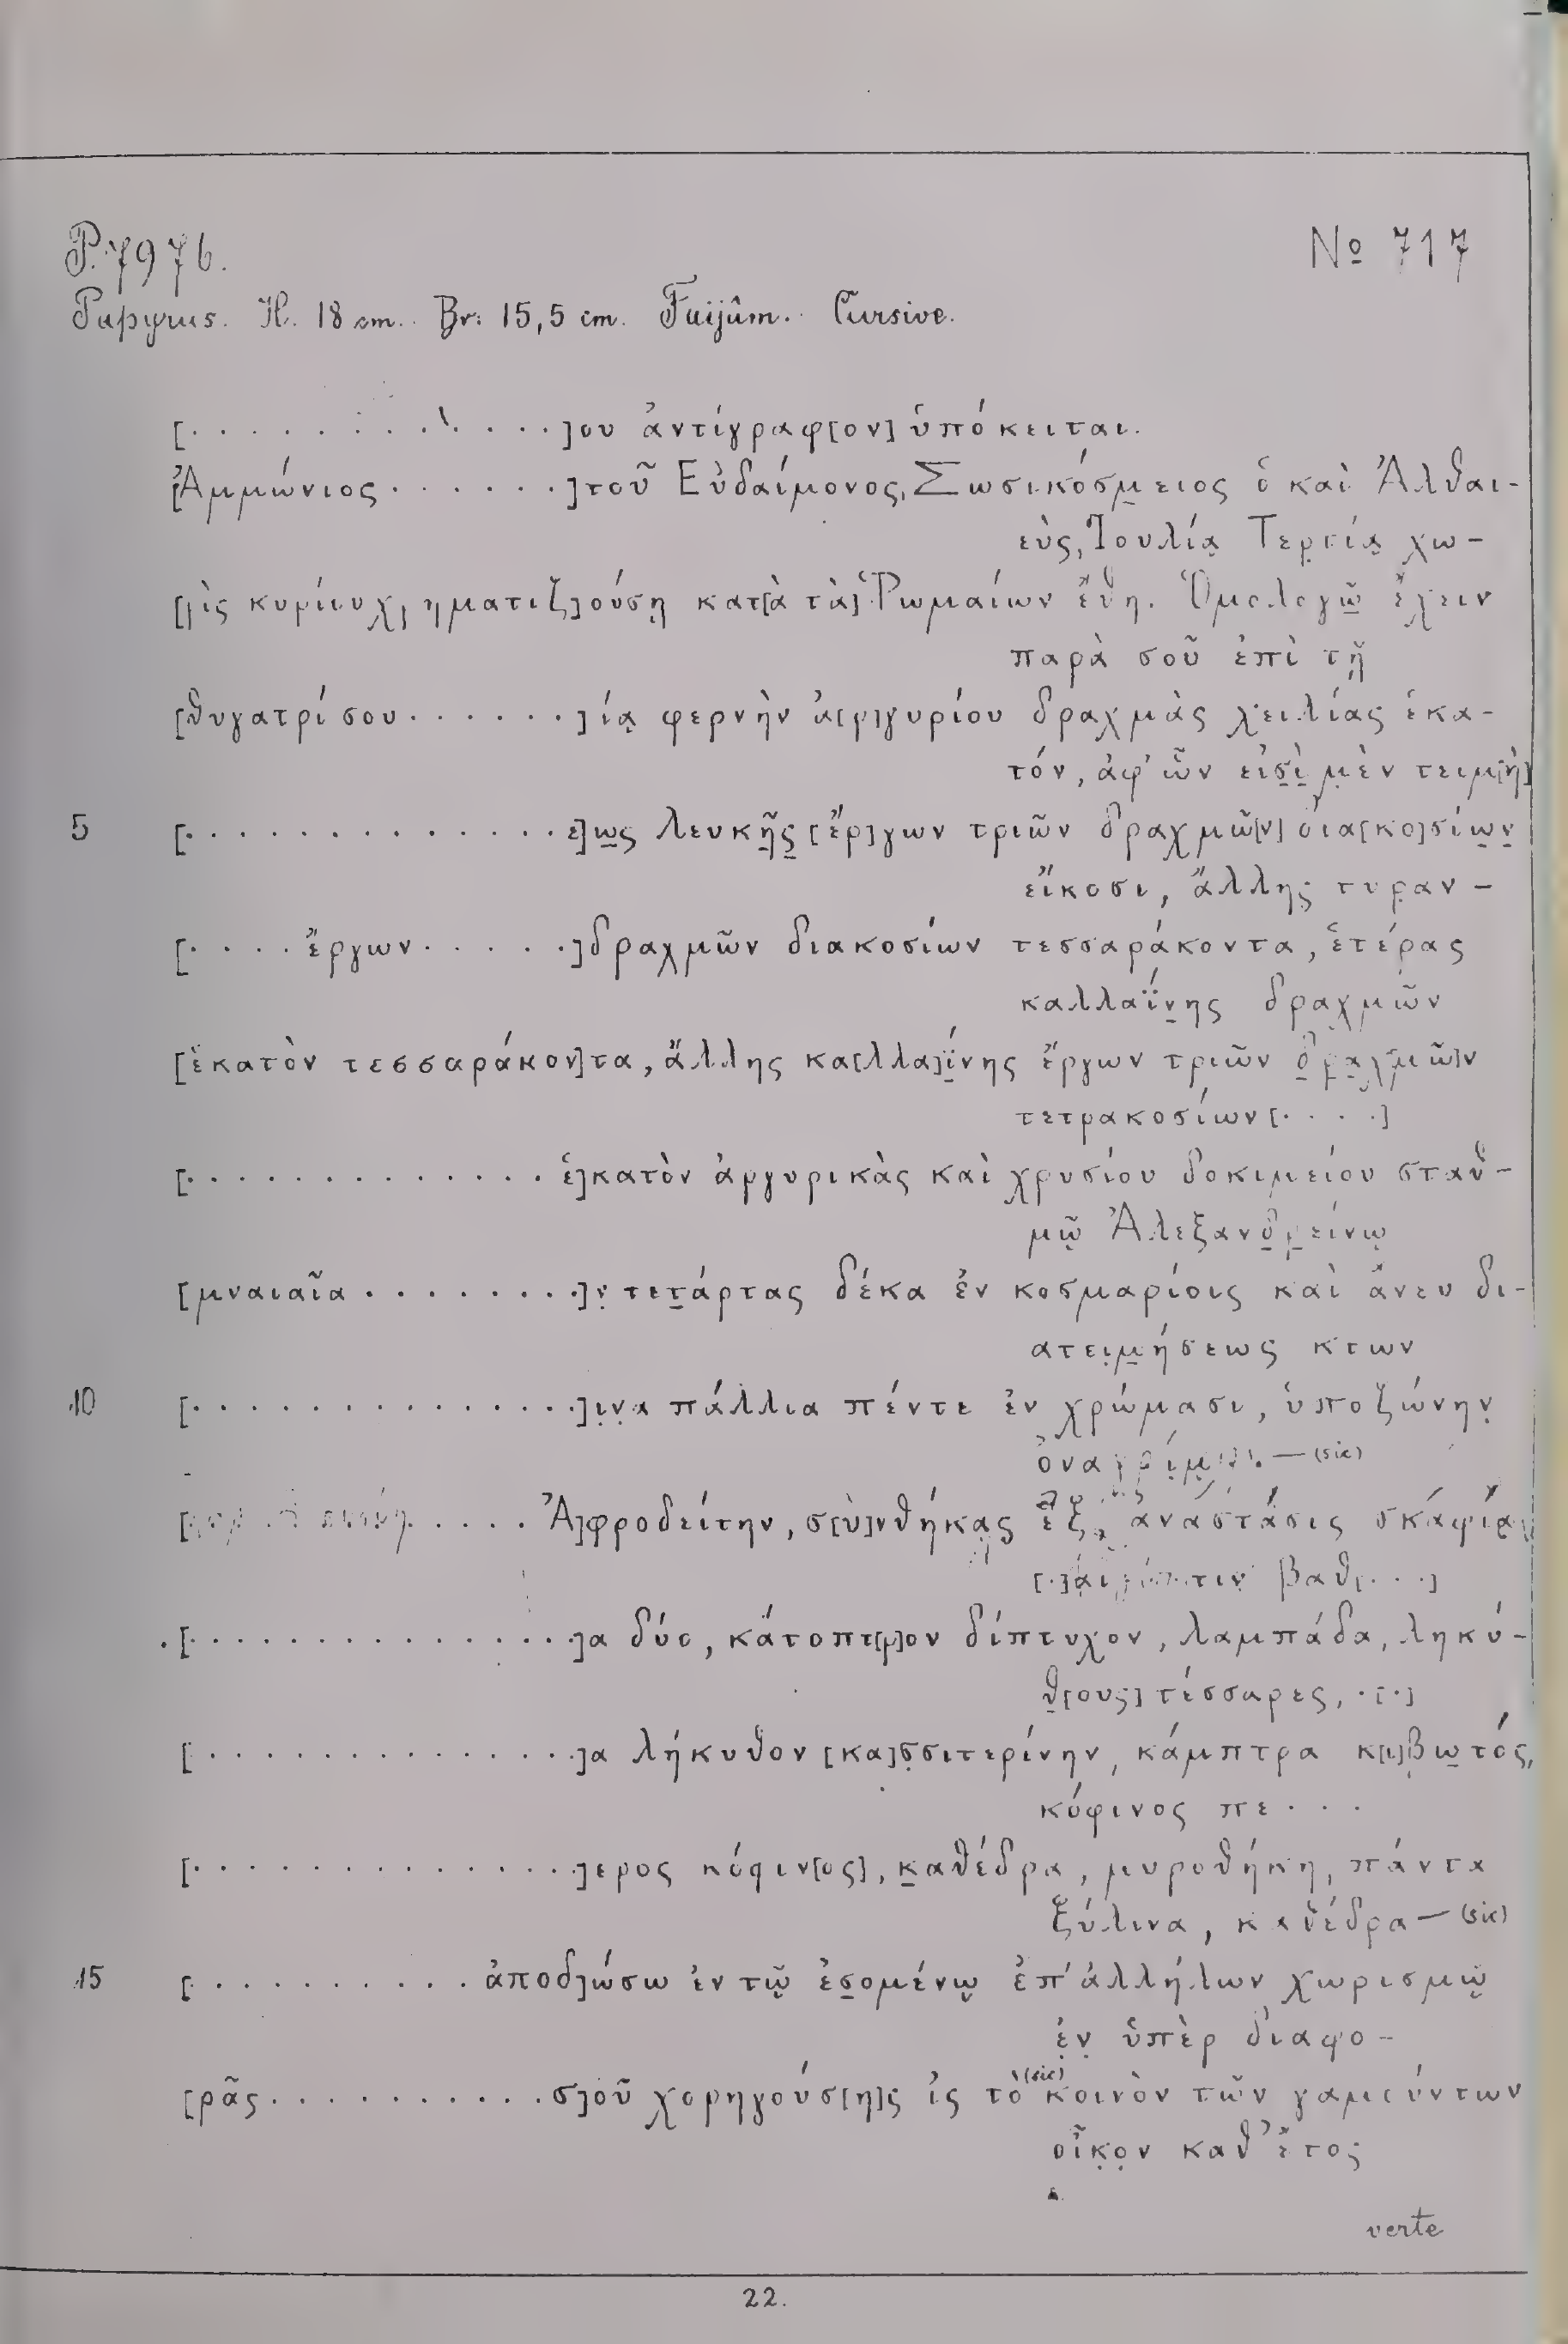 P. 7976.
No 717
Papyrus. H. 18 cm. Br. 15,5 cm. Faijûm. Cursive.
[. . . . . . . . . . . . .]ου ἀντίγραφ[ον] ὑπόκειται.
[Ἀμμώνιος . . . . . . .] τοῦ Εὐδαίμονος, Σωσικόσμειος ὁ καὶ Ἀλθαι-
εὺς, Ἰουλίᾳ Τερτίᾳ χω-
[ρὶς κυρίου χρηματιζ]ούσῃ κατ[ὰ τὰ] Ῥωμαίων ἔθη. Ὁμολογῶ ἔχειν
παρὰ σοῦ ἐπὶ τῇ
[θυγατρί σου . . . . . .]ίᾳ φερνὴν ἀ[ρ]γυρίου δραχμὰς χειλίας ἑκα-
τόν, ἀφ' ὧν εἰσὶ μὲν τειμ[ὴ]
5 [. . . . . . . . . . . . . . ε]ως λευκῆς [ἔρ]γων τριῶν δραχμῶ[ν] δια[κο]σίων
εἴκοσι, ἄλλης τυραν-
[. . . . ἔργων . . . . . .] δραχμῶν διακοσίων τεσσαράκοντα, ἑτέρας
καλλαΐνης δραχμῶν
[ἑκατὸν τεσσαράκον]τα, ἄλλης κα[λλα]ΐνης ἔργων τριῶν δραχμῶ[ν
τετρακοσίων [. . . .]
[. . . . . . . . . . . . . ἑ]κατὸν ἀργυρικὰς καὶ χρυσίου δοκιμείου σταθ-
μῷ Ἀλεξανδρείνῳ
[μναιαῖα . . . . . . . . .]ν τετάρτας δέκα ἐν κοσμαρίοις καὶ ἄνευ δι-
ατειμήσεως κτων
10 [. . . . . . . . . . . . . . .]ινα πάλλια πέντε ἐν χρώμασι, ὑποζώνην
— (sic)
. . . . Ἀ]φροδείτην, σ[υ]νθήκας ἀνάστασις
βαθ[. . .]
[. . . . . . . . . . . . . . .]α δύο, κάτοπτ[ρ]ον δίπτυχον, λαμπάδα, ληκύ-
θ[ους] τέσσαρες, .[.]
[. . . . . . . . . . . . . . .]α λήκυθον [κα]σσιτερίνην, κάμπτρα κ[ι]βωτός,
κόφινος πε . . .
[. . . . . . . . . . . . . . .]ερος κόφιν[ος], καθέδρα, μυροθήκη, πάντα
ξύλινα, καθέδρα — (sic)
15 [. . . . . . . . . . ἀποδ]ώσω ἐν τῷ ἐσομένῳ ἐπ' ἀλλήλων χωρισμῷ
ἐν ὑπὲρ διαφο-
[ρᾶς . . . . . . . . . . σ]οῦ χορηγούσ[η]ς ἰς τὸ (sic) κοινὸν τῶν γαμούντων
οἶκον καθ' ἔτος
verte
22.